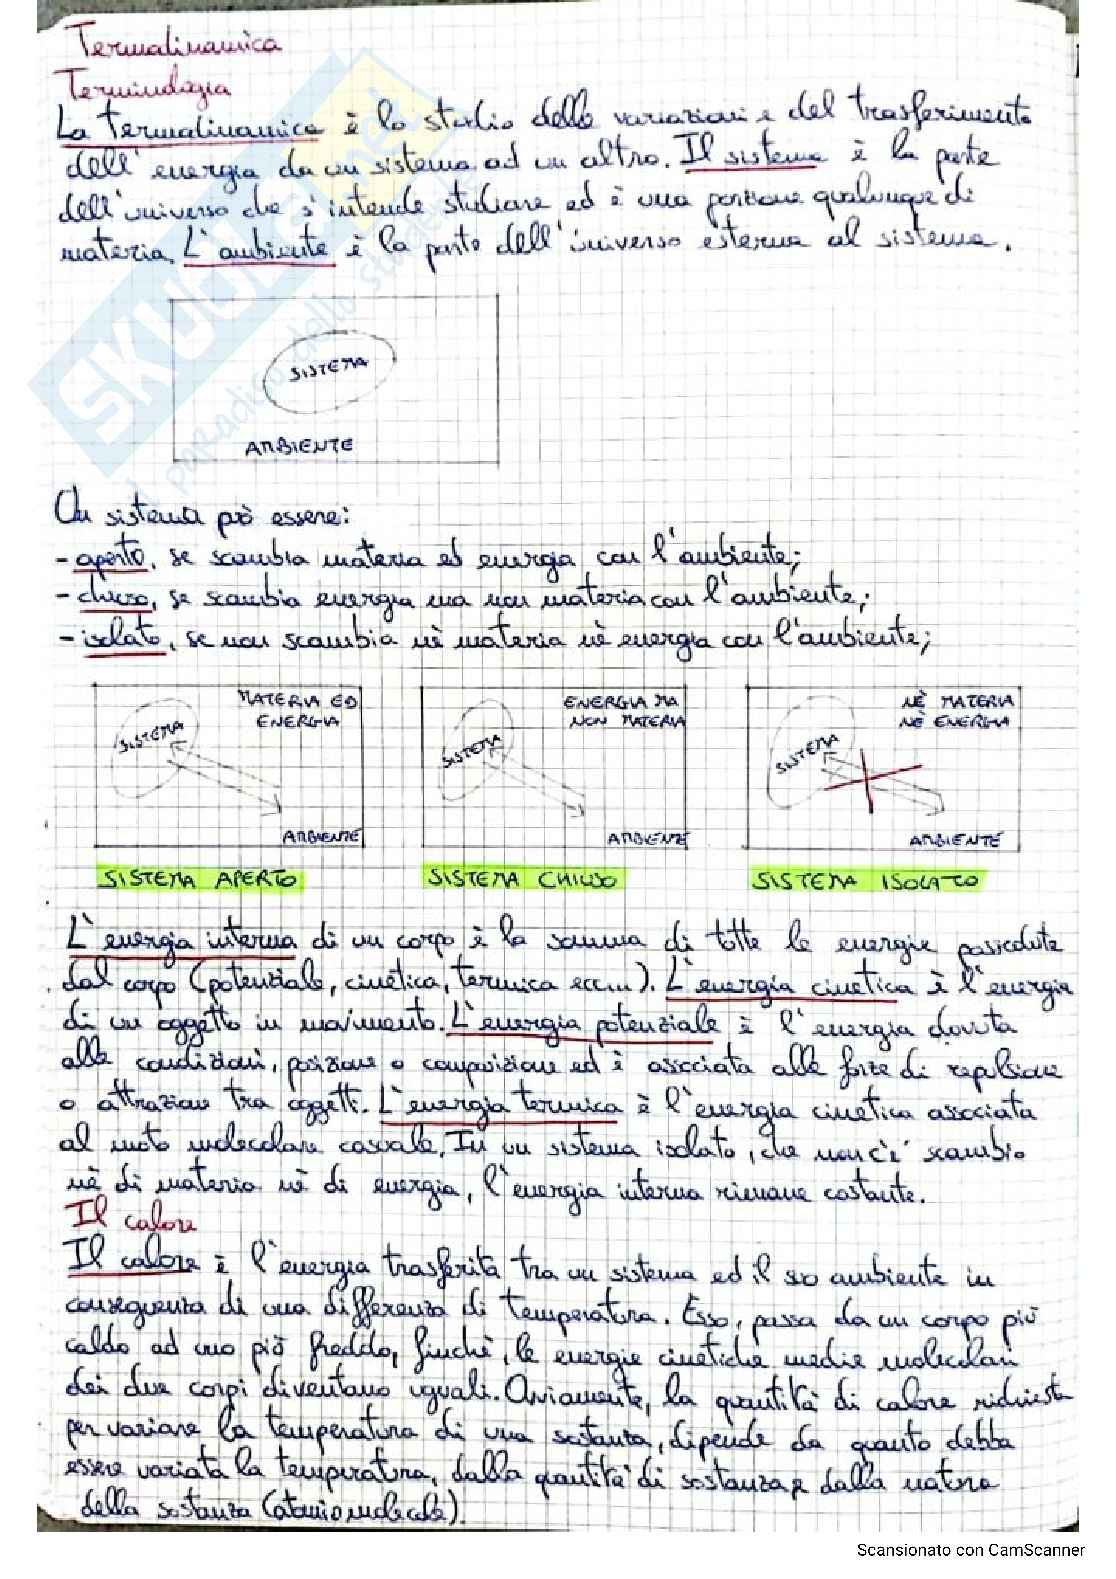 Termodinamica
Terminologia
La termodinamica è lo studio delle variazioni e del trasferimento
dell'energia da un sistema ad un altro. Il sistema è la parte
dell'universo che s'intende studiare ed è una porzione qualunque di
materia. L'ambiente è la parte dell'universo esterna al sistema.
SISTEMA
AMBIENTE
Un sistema può essere:
- aperto, se scambia materia ed energia con l'ambiente;
- chiuso, se scambia energia ma non materia con l'ambiente;
- isolato, se non scambia nè materia nè energia con l'ambiente;
MATERIA ED ENERGIA
SISTEMA
AMBIENTE
SISTEMA APERTO
ENERGIA MA NON MATERIA
SISTEMA
AMBIENTE
SISTEMA CHIUSO
NÈ MATERIA NÈ ENERGIA
SISTEMA
AMBIENTE
SISTEMA ISOLATO
L'energia interna di un corpo è la somma di tutte le energie possedute
dal corpo (potenziale, cinetica, termica ecc...). L'energia cinetica è l'energia
di un oggetto in movimento. L'energia potenziale è l'energia dovuta
alle condizioni, posizione o composizione ed è associata alle forze di repulsione
o attrazione tra oggetti. L'energia termica è l'energia cinetica associata
al moto molecolare casuale. In un sistema isolato, che non c'è scambio
nè di materia nè di energia, l'energia interna rimane costante.
Il calore
Il calore è l'energia trasferita tra un sistema ed il suo ambiente in
conseguenza di una differenza di temperatura. Esso, passa da un corpo più
caldo ad uno più freddo, finchè, le energie cinetiche medie molecolari
dei due corpi diventano uguali. Ovviamente, la quantità di calore richiesta
per variare la temperatura di una sostanza, dipende da quanto debba
essere variata la temperatura, dalla quantità di sostanza e dalla natura
della sostanza (atomi o molecole).
SKUOLA.net
il paradiso dello studente
Scansionato con CamScanner